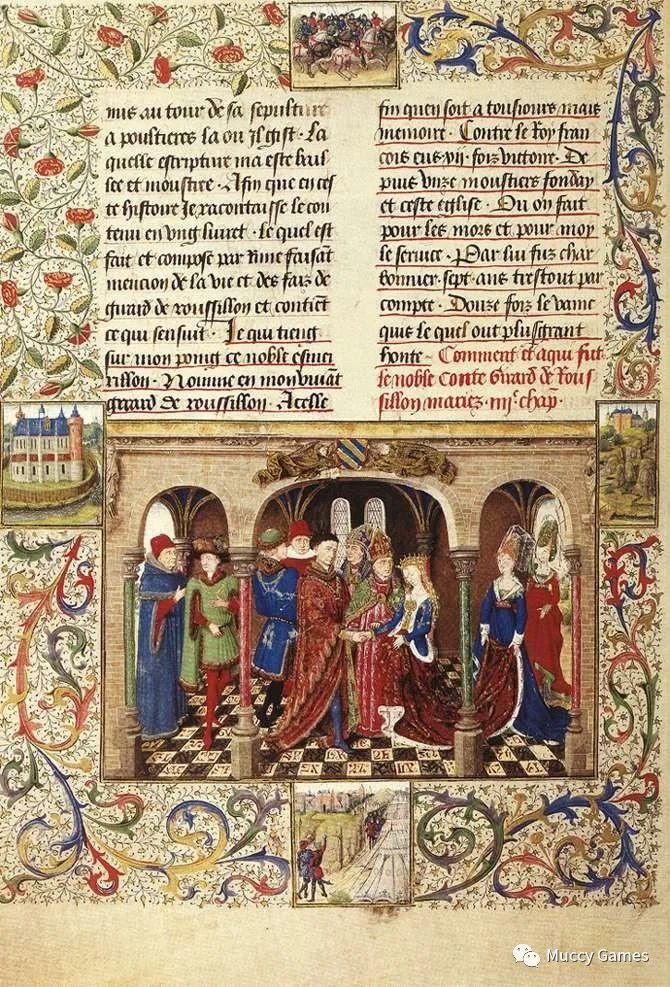 mis au tour de sa sepulture
a poultieres la ou il gist . La
quelle escripture ma este bail
lee et moustree . Afin que en ces
te histoire Je racontaisse le con
tenu en ung livret . le quel est
fait et compose par Rime faisant
mencion de la vie et des faiz de
gerard de roussillon et contient
ce qui sensuit . Je qui tieng
sur mon poing ce noble esmei
rillon . Nomme en mon vivant
gerard de roussillon . Acelle
fin quen soit a tousiours mais
memoire . Contre le Roy fran
cois eus .vij. foiz victoire . De
puis unze moustiers fonday
et ceste eglise . Ou on fait
pour les mors et pour moy
le service . Par lui fuz char
bonnier . sept . ans trestout par
compte . Douze foiz le vainc
quis le quel out plus grant
honte ~ Comment et a qui fut
le noble Conte Gerard de Rous
sillon mariez . iiij.e chap.
Muccy Games